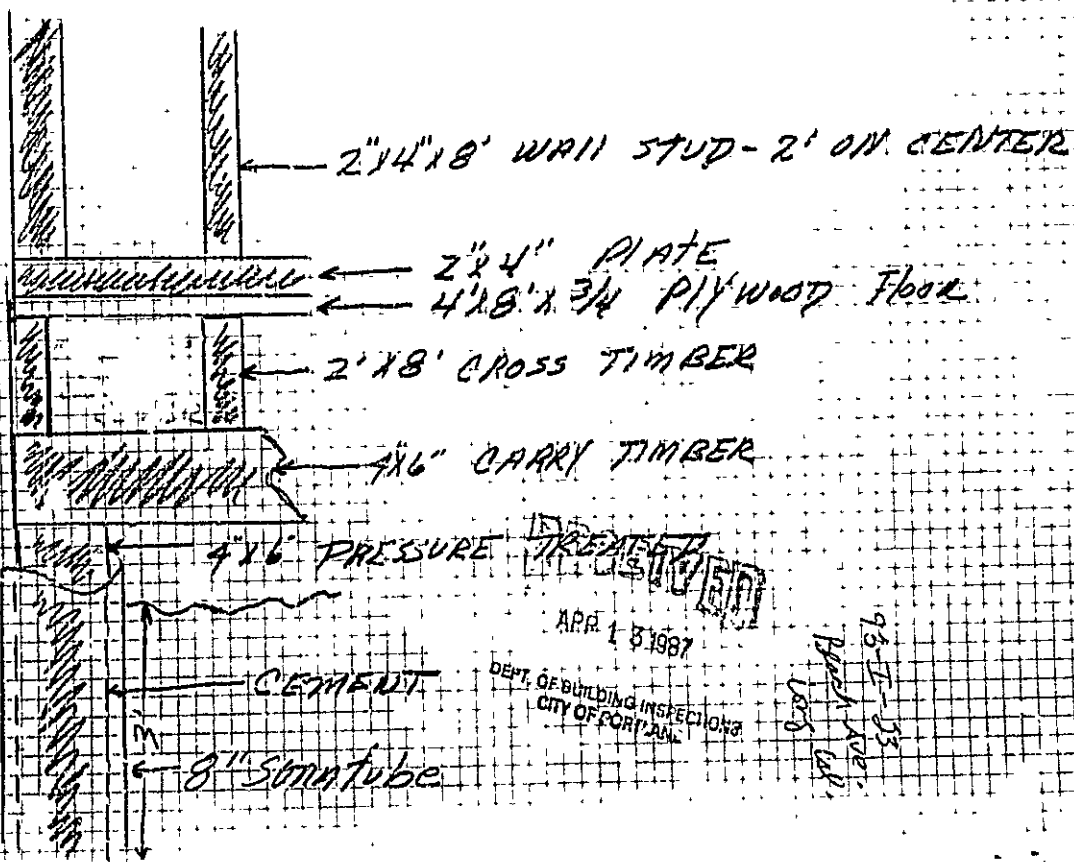 2"X4"X8' WALL STUD - 2' ON CENTER
2"X4" PLATE
4'X8'X 3/4 PLYWOOD Floor
2'X8' CROSS TIMBER
4X6" CARRY TIMBER
4"X6" PRESSURE TREATED
RECEIVED
APR 13 1987
DEPT. OF BUILDING INSPECTIONS
CITY OF PORTLAND
CEMENT
3'
8" Sonntube
95-I-33
Ave.